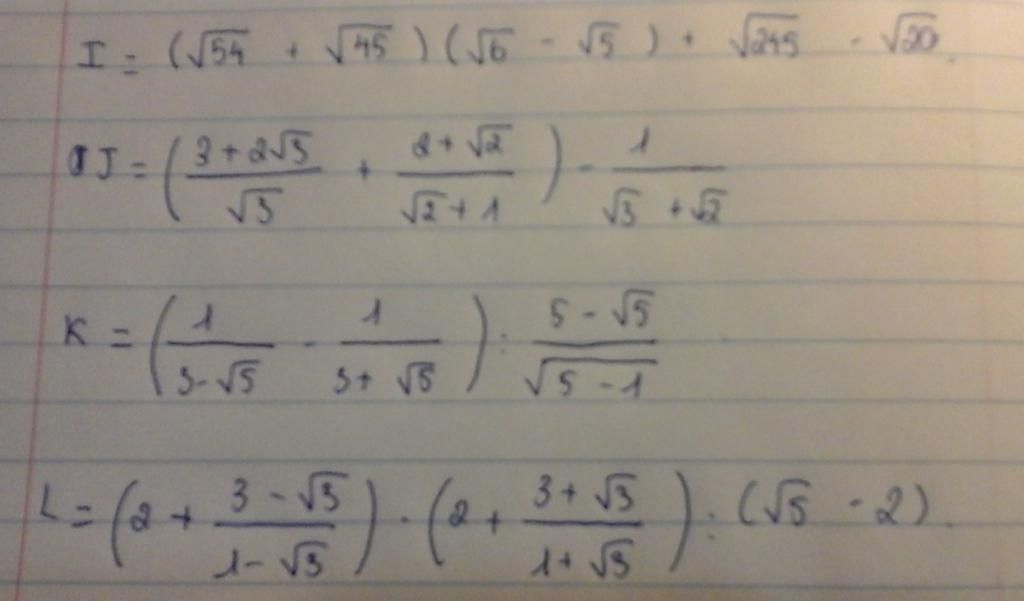 I = (√54 + √45)(√6 - √5) + √245 - √20.
J = ((3 + 2√3)/√3 + (2 + √2)/(√2 + 1)) - 1/(√3 + √2)
K = (1/(3 - √5) - 1/(3 + √5)) : (5 - √5)/√(5 - 1)
L = (2 + (3 - √3)/(1 - √3)) . (2 + (3 + √3)/(1 + √3)) : (√5 - 2).